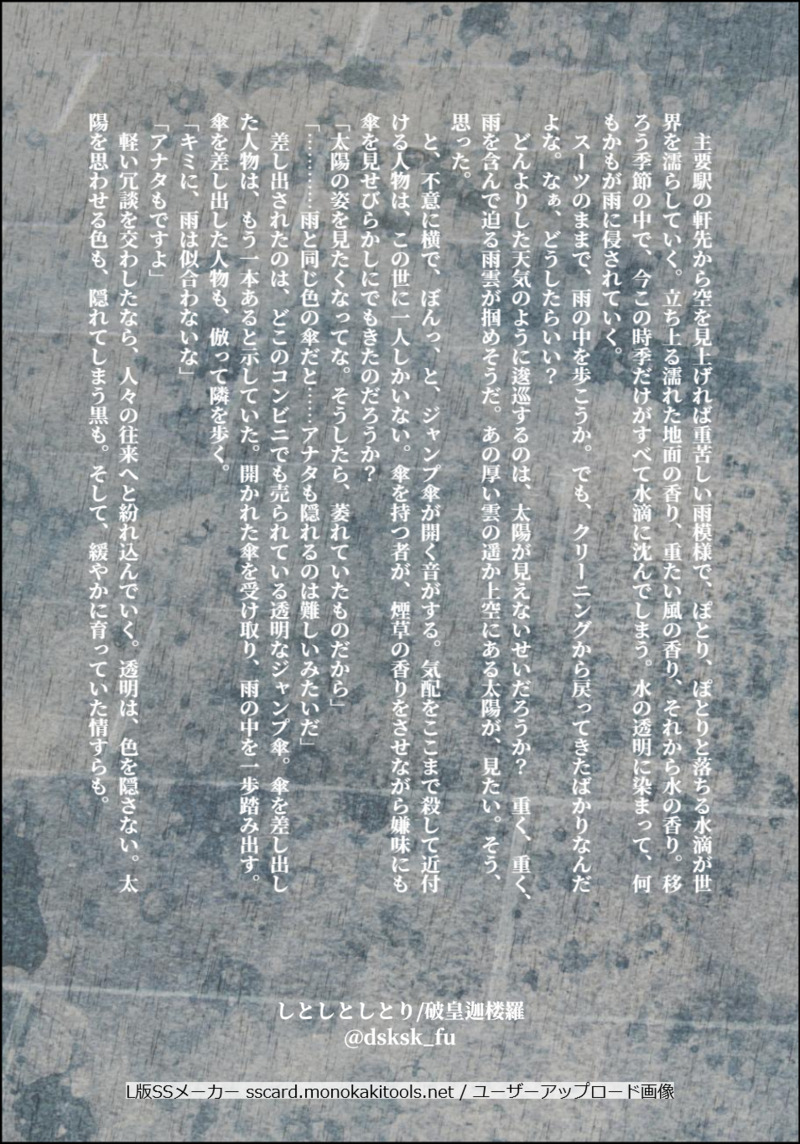 主要駅の軒先から空を見上げれば重苦しい雨模様で、ぽとり、ぽとりと落ちる水滴が世
界を濡らしていく。立ち上る濡れた地面の香り、重たい風の香り、それから水の香り。移
ろう季節の中で、今この時季だけがすべて水滴に沈んでしまう。水の透明に染まって、何
もかもが雨に侵されていく。
　スーツのままで、雨の中を歩こうか。でも、クリーニングから戻ってきたばかりなんだ
よな。なぁ、どうしたらいい？
　どんよりした天気のように逡巡するのは、太陽が見えないせいだろうか？　重く、重く、
雨を含んで迫る雨雲が掴めそうだ。あの厚い雲の遥か上空にある太陽が、見たい。そう、
思った。
　と、不意に横で、ぼんっ、と、ジャンプ傘が開く音がする。気配をここまで殺して近付
ける人物は、この世に一人しかいない。傘を持つ者が、煙草の香りをさせながら嫌味にも
傘を見せびらかしにでもきたのだろうか？
「太陽の姿を見たくなってな。そうしたら、萎れていたものだから」
「…………雨と同じ色の傘だと……アナタも隠れるのは難しいみたいだ」
　差し出されたのは、どこのコンビニでも売られている透明なジャンプ傘。傘を差し出し
た人物は、もう一本あると示していた。開かれた傘を受け取り、雨の中を一歩踏み出す。
傘を差し出した人物も、倣って隣を歩く。
「キミに、雨は似合わないな」
「アナタもですよ」
　軽い冗談を交わしたなら、人々の往来へと紛れ込んでいく。透明は、色を隠さない。太
陽を思わせる色も、隠れてしまう黒も。そして、緩やかに育っていた情すらも。
しとしとしとり/破皇迦楼羅
@dsksk_fu
L版SSメーカー sscard.monokakitools.net / ユーザーアップロード画像